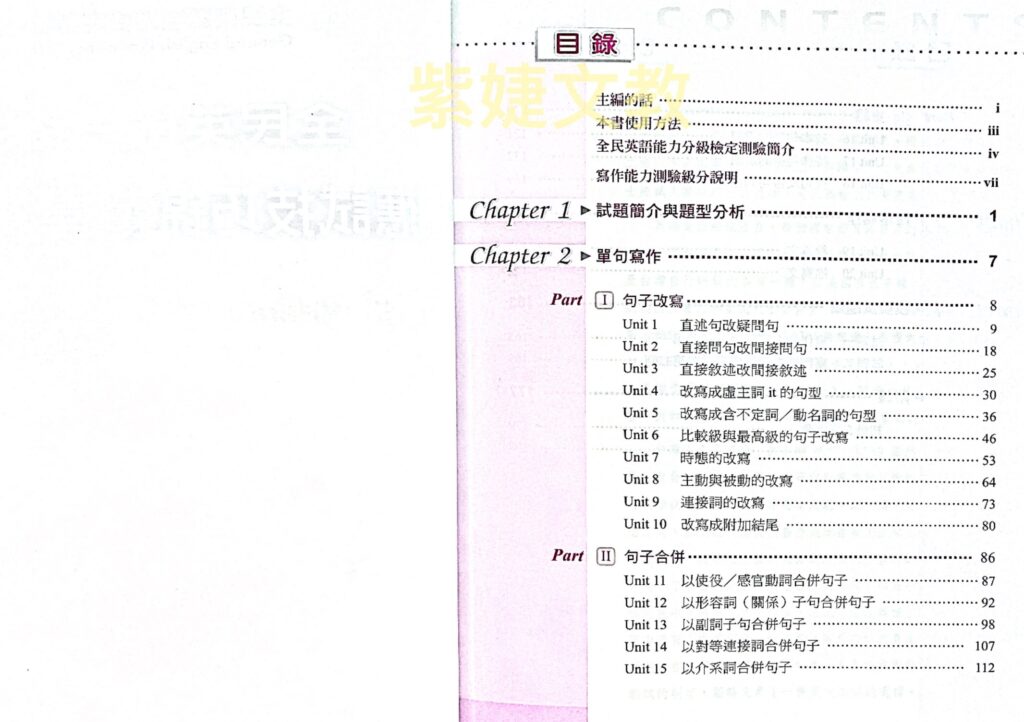 目錄
紫婕文教
主編的話 i
本書使用方法 iii
全民英語能力分級檢定測驗簡介 iv
寫作能力測驗級分說明 vii
Chapter 1 ▶ 試題簡介與題型分析 1
Chapter 2 ▶ 單句寫作 7
Part I 句子改寫 8
Unit 1 直述句改疑問句 9
Unit 2 直接問句改間接問句 18
Unit 3 直接敘述改間接敘述 25
Unit 4 改寫成虛主詞 it 的句型 30
Unit 5 改寫成含不定詞／動名詞的句型 36
Unit 6 比較級與最高級的句子改寫 46
Unit 7 時態的改寫 53
Unit 8 主動與被動的改寫 64
Unit 9 連接詞的改寫 73
Unit 10 改寫成附加結尾 80
Part II 句子合併 86
Unit 11 以使役／感官動詞合併句子 87
Unit 12 以形容詞（關係）子句合併句子 92
Unit 13 以副詞子句合併句子 98
Unit 14 以對等連接詞合併句子 107
Unit 15 以介系詞合併句子 112